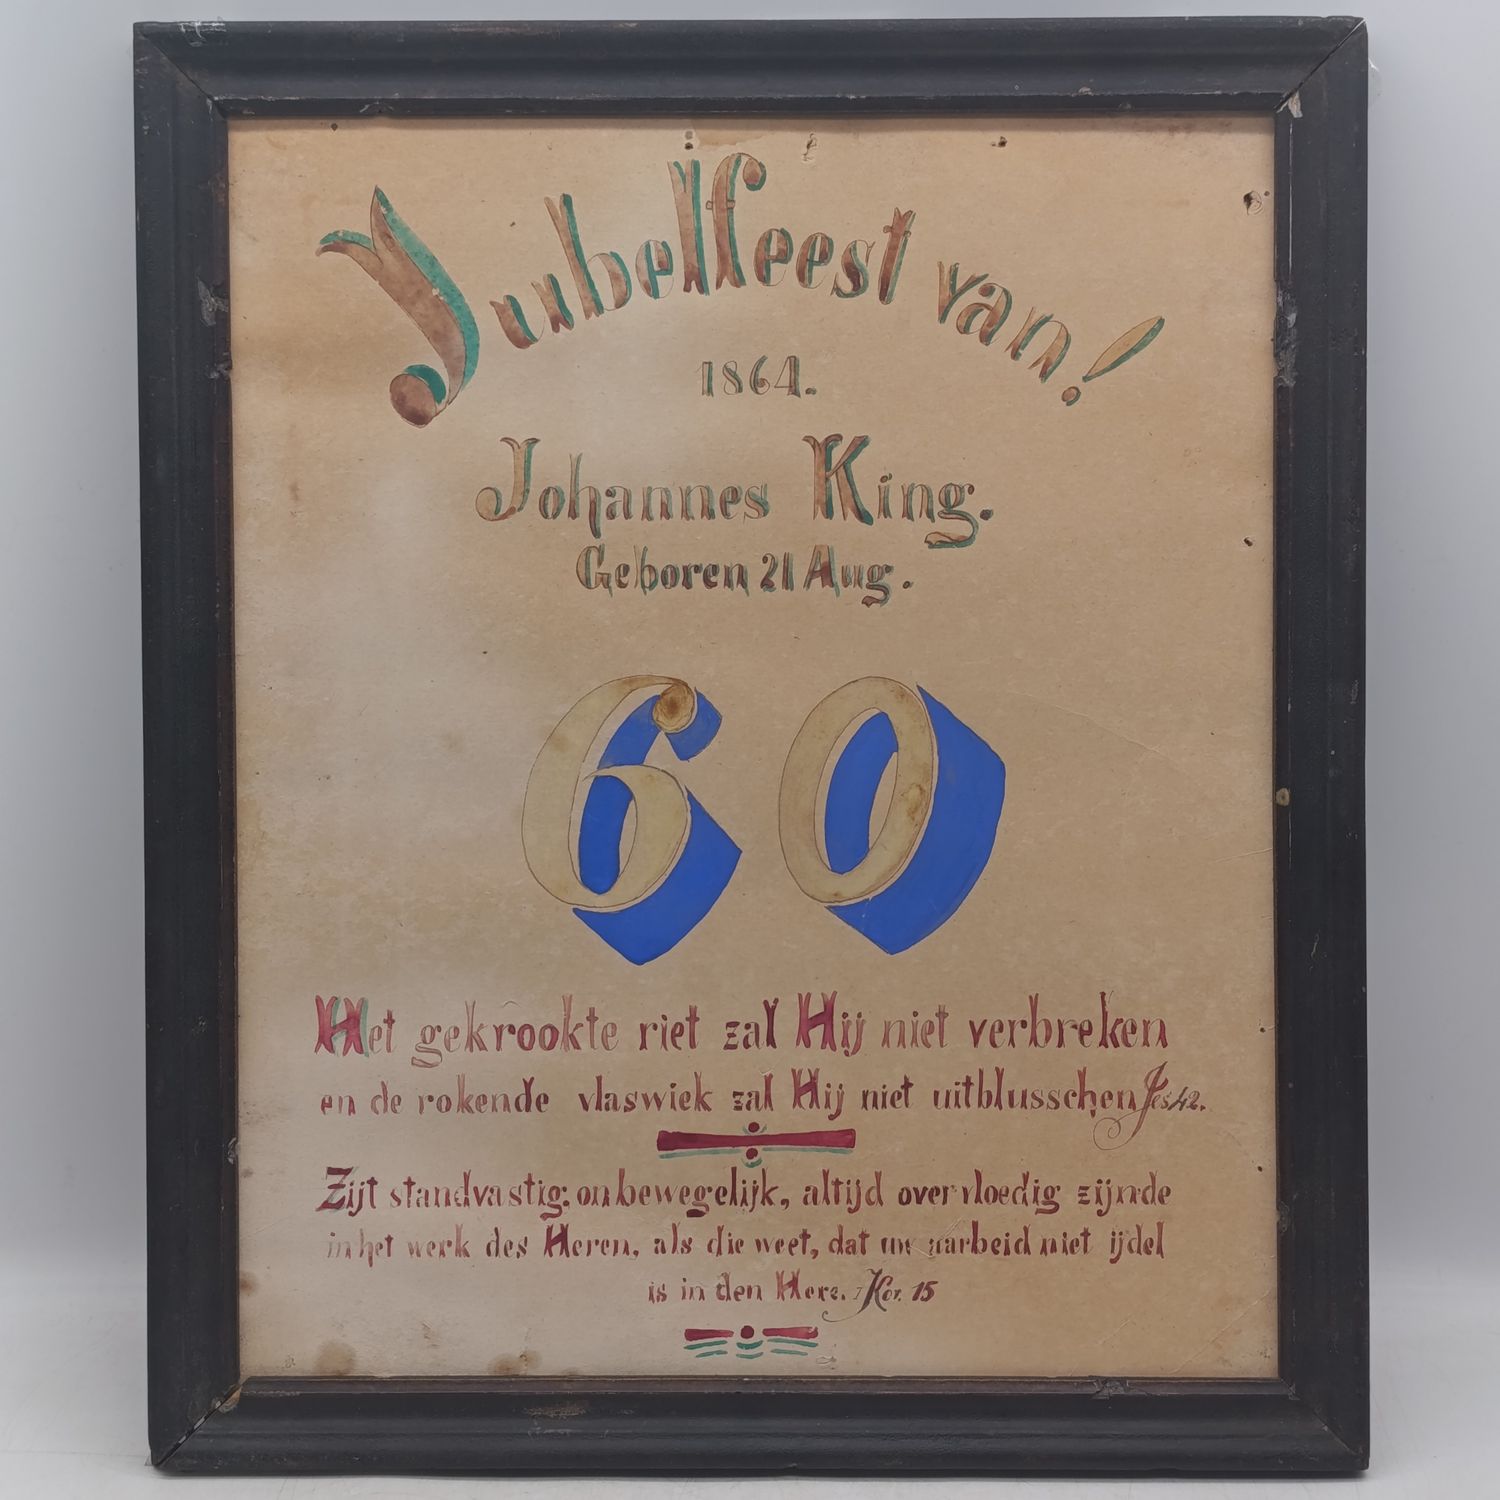 Jubelfeest van!
1864.
Johannes King.
Geboren 21 Aug.
60
Het gekrookte riet zal Hij niet verbreken
en de rokende vlaswiek zal Hij niet uitblusschen Jes 42.
Zijt standvastig, onbewegelijk, altijd overvloedig zijnde
in het werk des Heren, als die weet, dat uw aarbeid niet ijdel
is in den Here. 1 Kor. 15